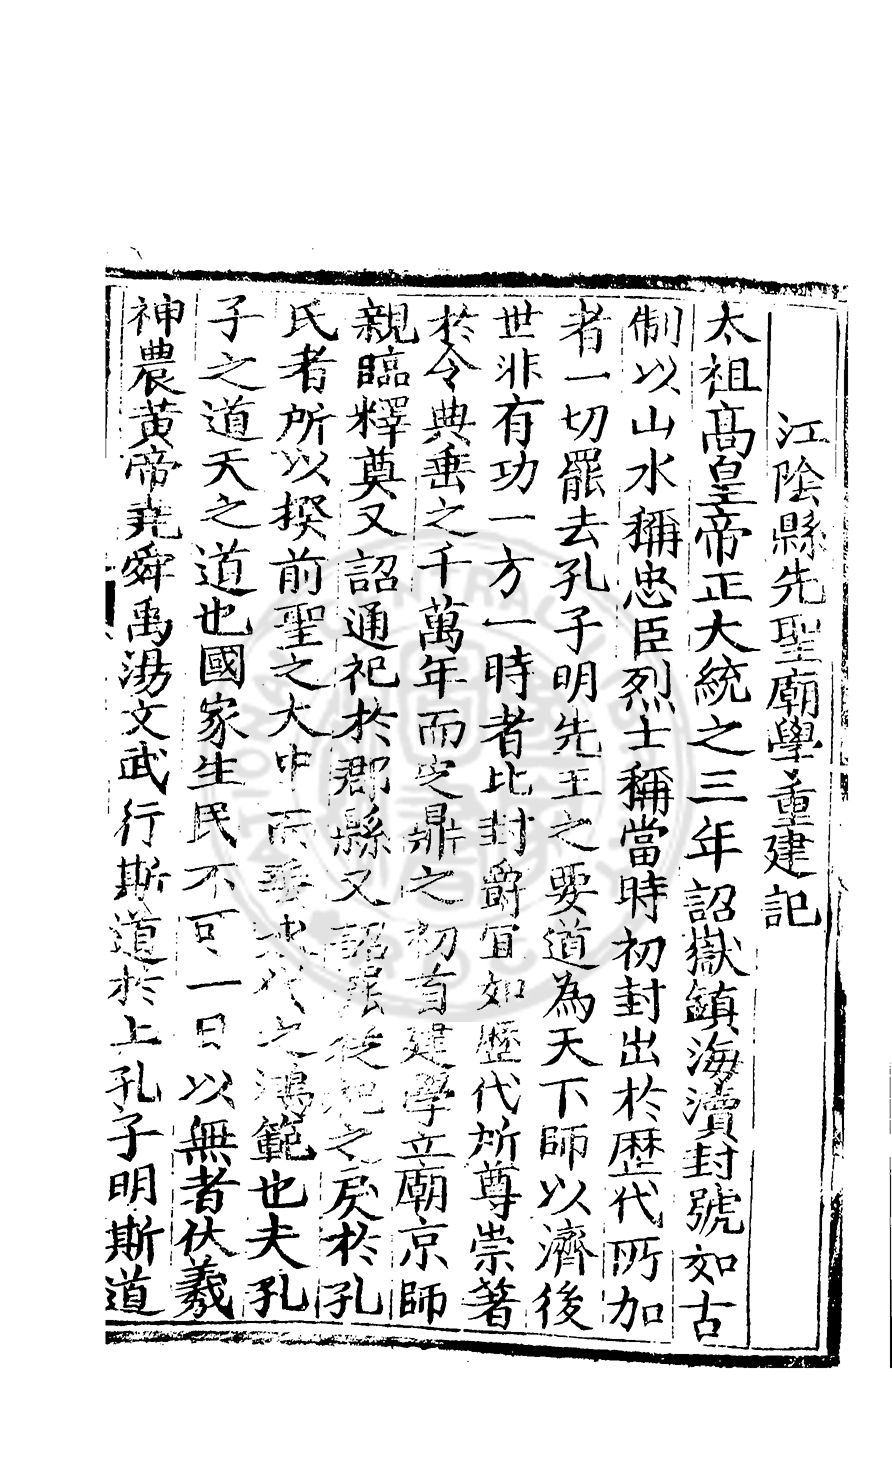 江陰縣先聖廟學重建記
太祖高皇帝正大統之三年詔嶽鎮海瀆封號如古
制以山水稱忠臣烈士稱當時初封出於歷代所加
者一切罷去孔子明先王之要道為天下師以濟後
世非有功一方一時者比封爵宜如歷代所尊崇著
於令典垂之千萬年而定鼎之初首建學立廟京師
親臨釋奠又詔通祀於郡縣又詔從祀之於孔
氏者所以揆前聖之大中而垂之鴻範也夫孔
子之道天之道也國家生民不可一日以無者伏羲
神農黃帝堯舜禹湯文武行斯道於上孔子明斯道
NATIONAL CENTRAL LIBRARY R.O.C.